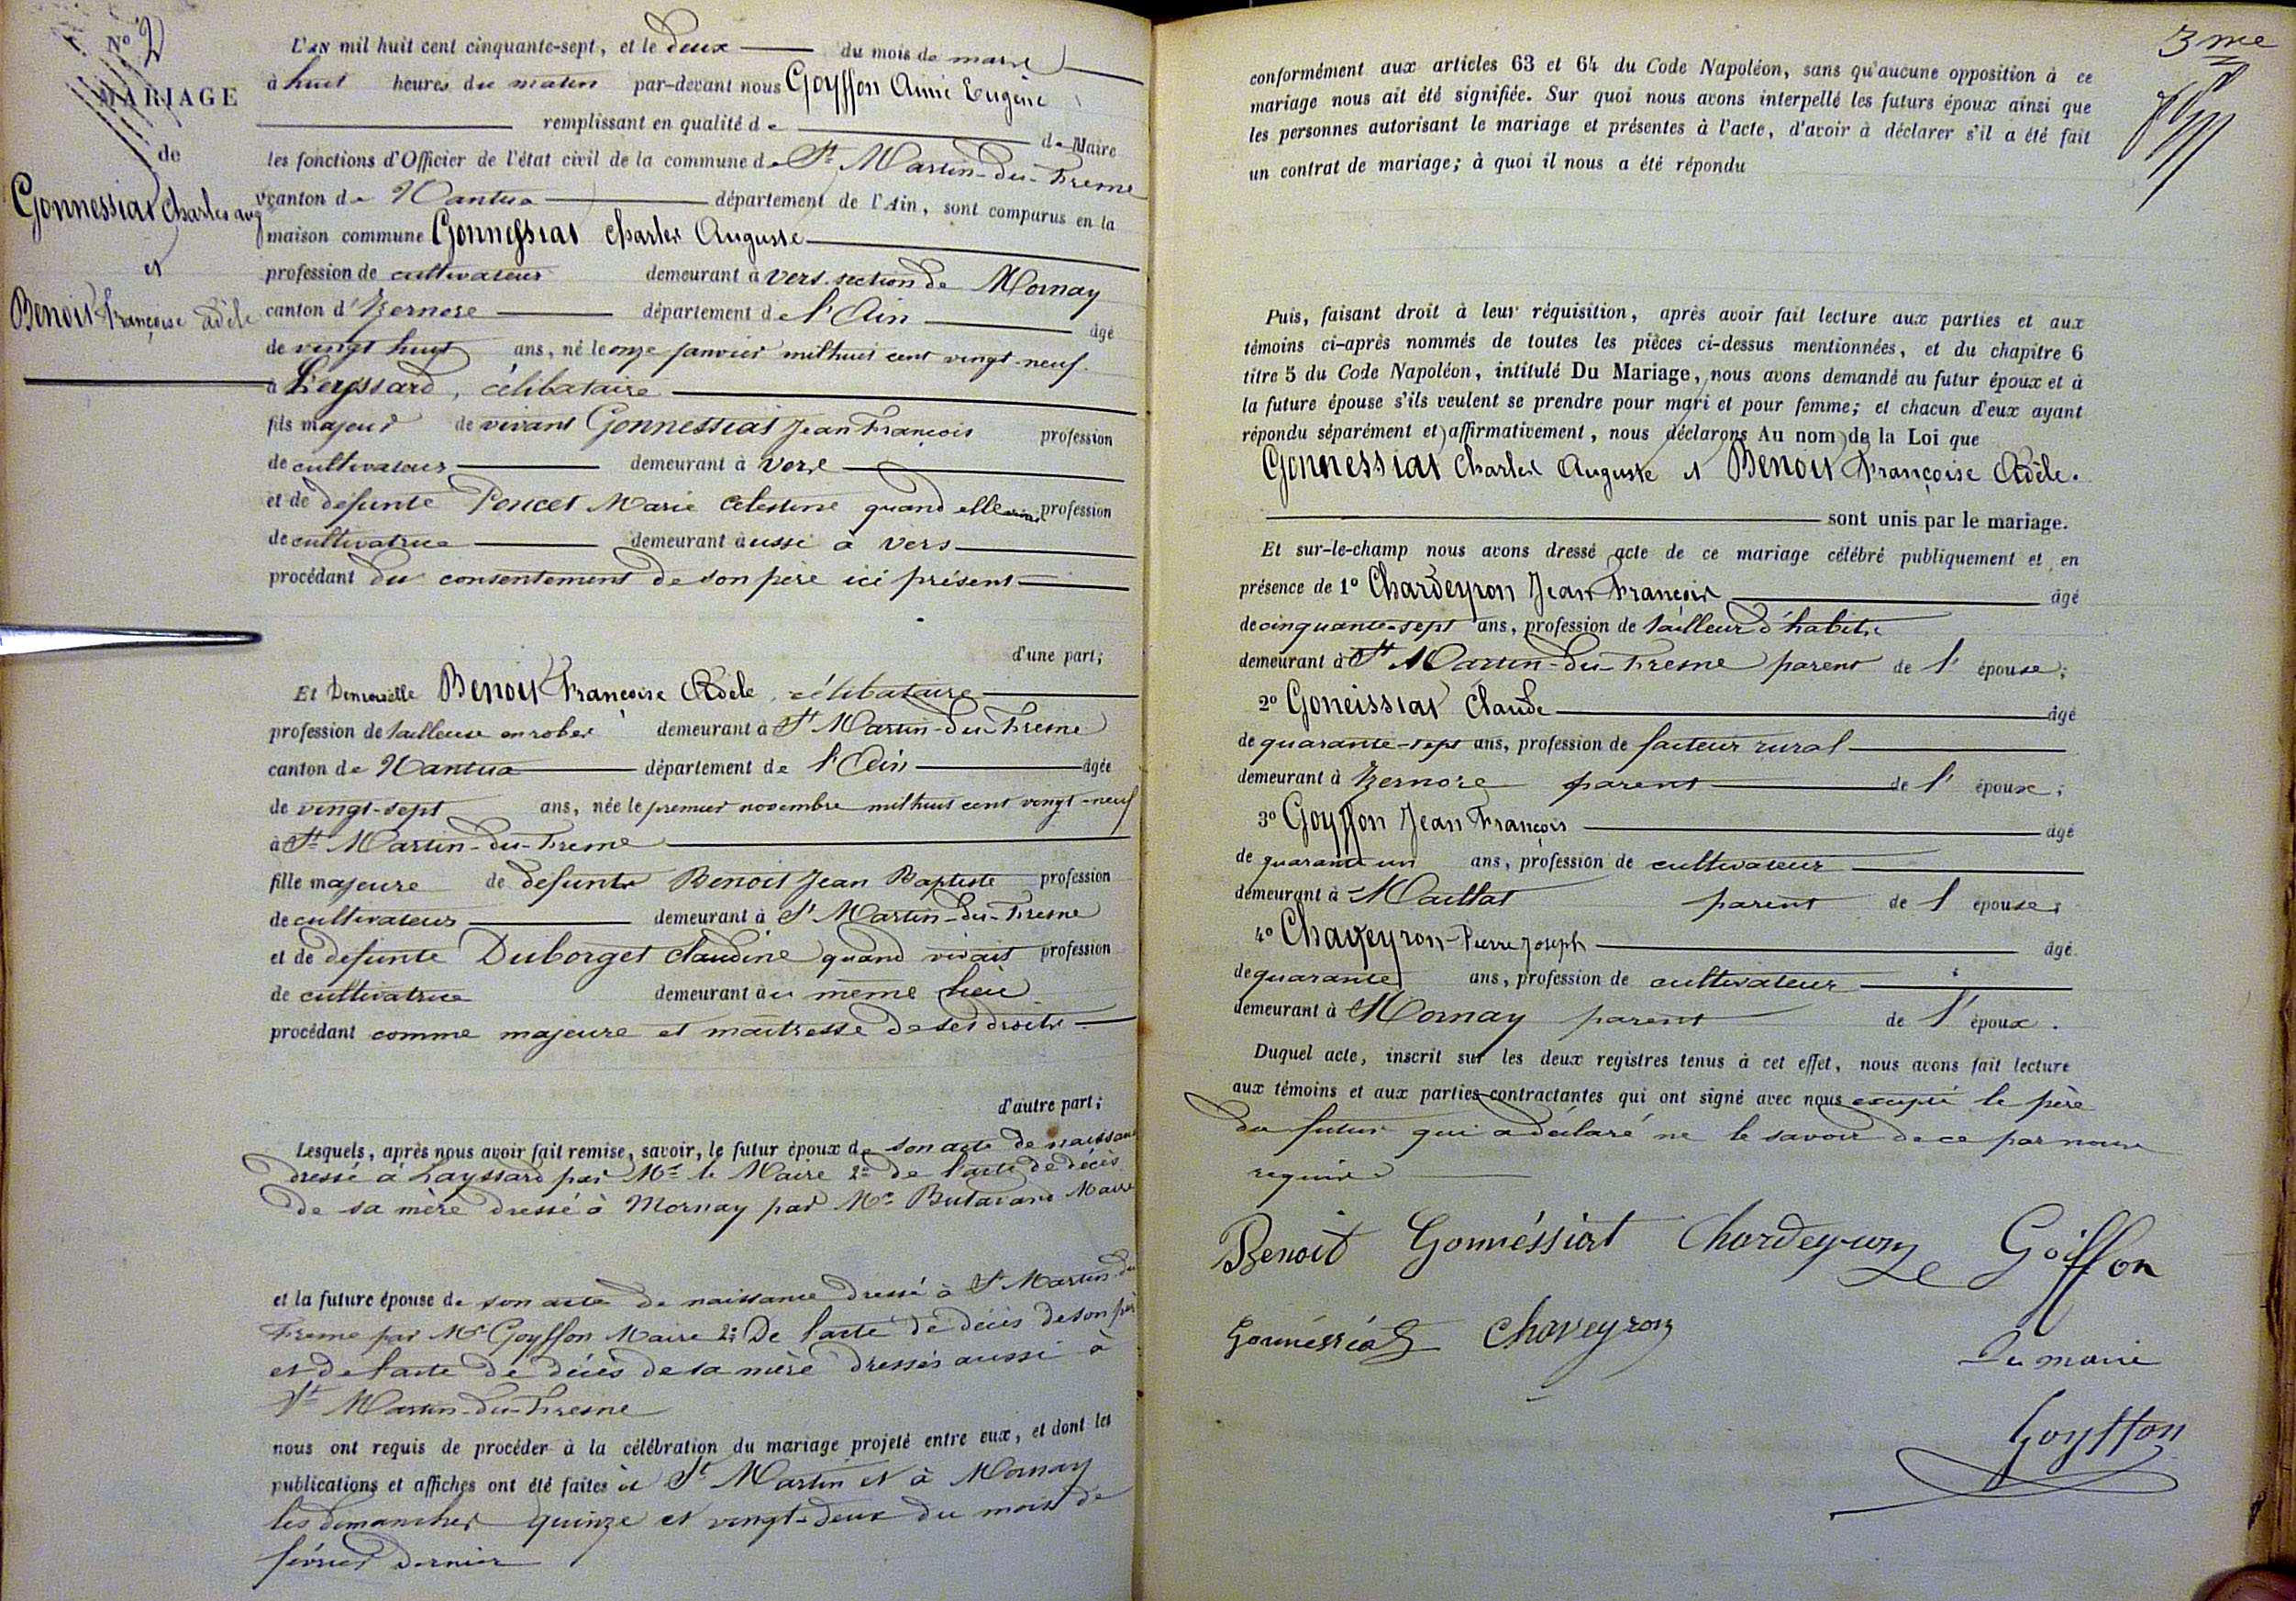 No 2
MARIAGE
de
Gonnessiat Charles aug
et
Benoit Françoise Adèle
L'AN mil huit cent cinquante-sept, et le deux du mois de mars
à huit heures du matin par-devant nous Goyffon Aimé Eugène
remplissant en qualité de de Maire
les fonctions d'Officier de l'état civil de la commune de St Martin-du-Fresne
canton de Nantua département de l'Ain, sont comparus en la
maison commune Gonnessiat Charles Auguste
profession de cultivateur demeurant à Vers section de Mornay
canton d'Izernore département de l'Ain âgé
de vingt huit ans, né le onze janvier mil huit cent vingt-neuf
à Leyssard, célibataire
fils majeur de vivant Gonnessiat Jean François profession
de cultivateur demeurant à Vers
et de défunte Poncet Marie Celestine quand elle vivait profession
de cultivatrice demeurant aussi à Vers
procédant du consentement de son père ici présent
d'une part;
Et Demoiselle Benoit Françoise Adèle, célibataire
profession de tailleuse en robes demeurant à St Martin-du-Fresne
canton de Nantua département de l'Ain âgée
de vingt-sept ans, née le premier novembre mil huit cent vingt-neuf
à St Martin-du-Fresne
fille majeure de defunts Benoit Jean Baptiste profession
de cultivateur demeurant à St Martin-du-Fresne
et de défunte Duborget Claudine quand vivait profession
de cultivatrice demeurant au même lieu
procédant comme majeure et maitresse de ses droits
d'autre part;
Lesquels, après nous avoir fait remise, savoir, le futur époux de son acte de naissance
dressé à Layssard par Mr le Maire 2° de l'acte de décès
de sa mère dressé à Mornay par Mr Butavand Maire
et la future épouse de son acte de naissance dressé à St Martin-du
Fresne par Mr Goyffon Maire 2° De l'acte de décès de son père
et de l'acte de décès de sa mère dressés aussi à
St Martin-du-Fresne
nous ont requis de procéder à la célébration du mariage projeté entre eux, et dont les
publications et affiches ont été faites à St Martin et à Mornay
les dimanches quinze et vingt-deux du mois de
février dernier
3me
conformément aux articles 63 et 64 du Code Napoléon, sans qu'aucune opposition à ce
mariage nous ait été signifiée. Sur quoi nous avons interpellé les futurs époux ainsi que
les personnes autorisant le mariage et présentes à l'acte, d'avoir à déclarer s'il a été fait
un contrat de mariage; à quoi il nous a été répondu
Puis, faisant droit à leur réquisition, après avoir fait lecture aux parties et aux
témoins ci-après nommés de toutes les pièces ci-dessus mentionnées, et du chapitre 6
titre 5 du Code Napoléon, intitulé Du Mariage, nous avons demandé au futur époux et à
la future épouse s'ils veulent se prendre pour mari et pour femme; et chacun d'eux ayant
répondu séparément et affirmativement, nous déclarons Au nom de la Loi que
Gonnessiat Charles Auguste et Benoit Françoise Adèle.
sont unis par le mariage.
Et sur-le-champ nous avons dressé acte de ce mariage célébré publiquement et en
présence de 1° Chardeyron Jean François âgé
de cinquante-sept ans, profession de tailleur d'habits
demeurant à St Martin-du-Fresne parent de l'épouse;
2° Goneissiat Claude âgé
de quarante-sept ans, profession de facteur rural
demeurant à Izernore parent de l'époux;
3° Goyffon Jean François âgé
de quarante un ans, profession de cultivateur
demeurant à Maillat parent de l épouse;
4° Chaveyron Pierre Joseph âgé
de quarante ans, profession de cultivateur
demeurant à Mornay parent de l'époux.
Duquel acte, inscrit sur les deux registres tenus à cet effet, nous avons fait lecture
aux témoins et aux parties contractantes qui ont signé avec nous excepté le père
du futur qui a déclaré ne le savoir de ce par nous
requis
Benoit Gonnéssiat Chardeyron Goiffon
Gonnéssiat Chaveyron
Le maire
Goyffon